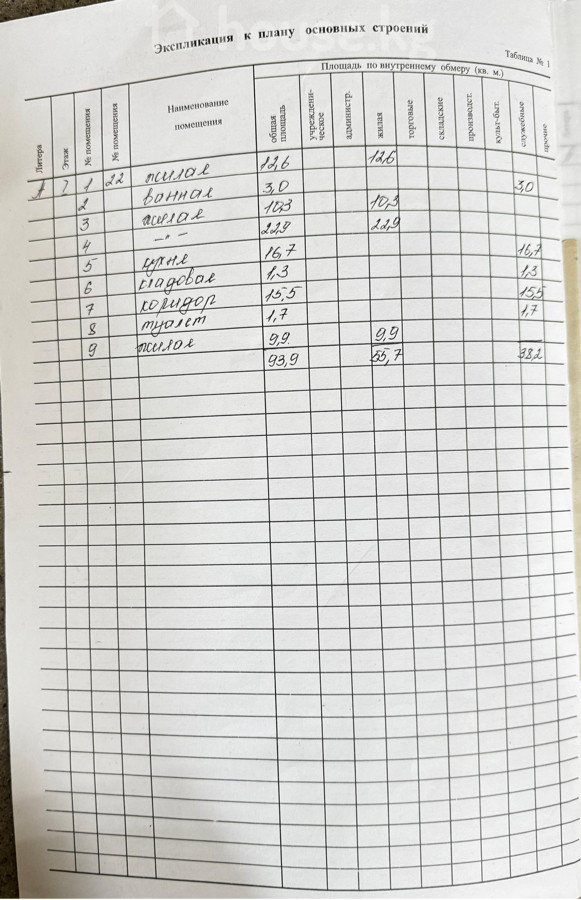 house.kg
Экспликация к плану основных строений
Таблица № 1
Площадь по внутреннему обмеру (кв. м.)
Литера Этаж № помещения № помещения Наименование помещения общая площадь учреждени-ческое администр. жилая торговые складские производст. культ-быт. служебные прочие
1 22 жилая 12,6 12,6
2 ванная 3,0 3,0
3 жилая 10,3 10,3
4 –"– 22,9 22,9
5 кухня 16,7 16,7
6 кладовая 1,3 1,3
7 коридор 15,5 15,5
8 туалет 1,7 1,7
9 жилая 9,9 9,9
93,9 55,7 38,2